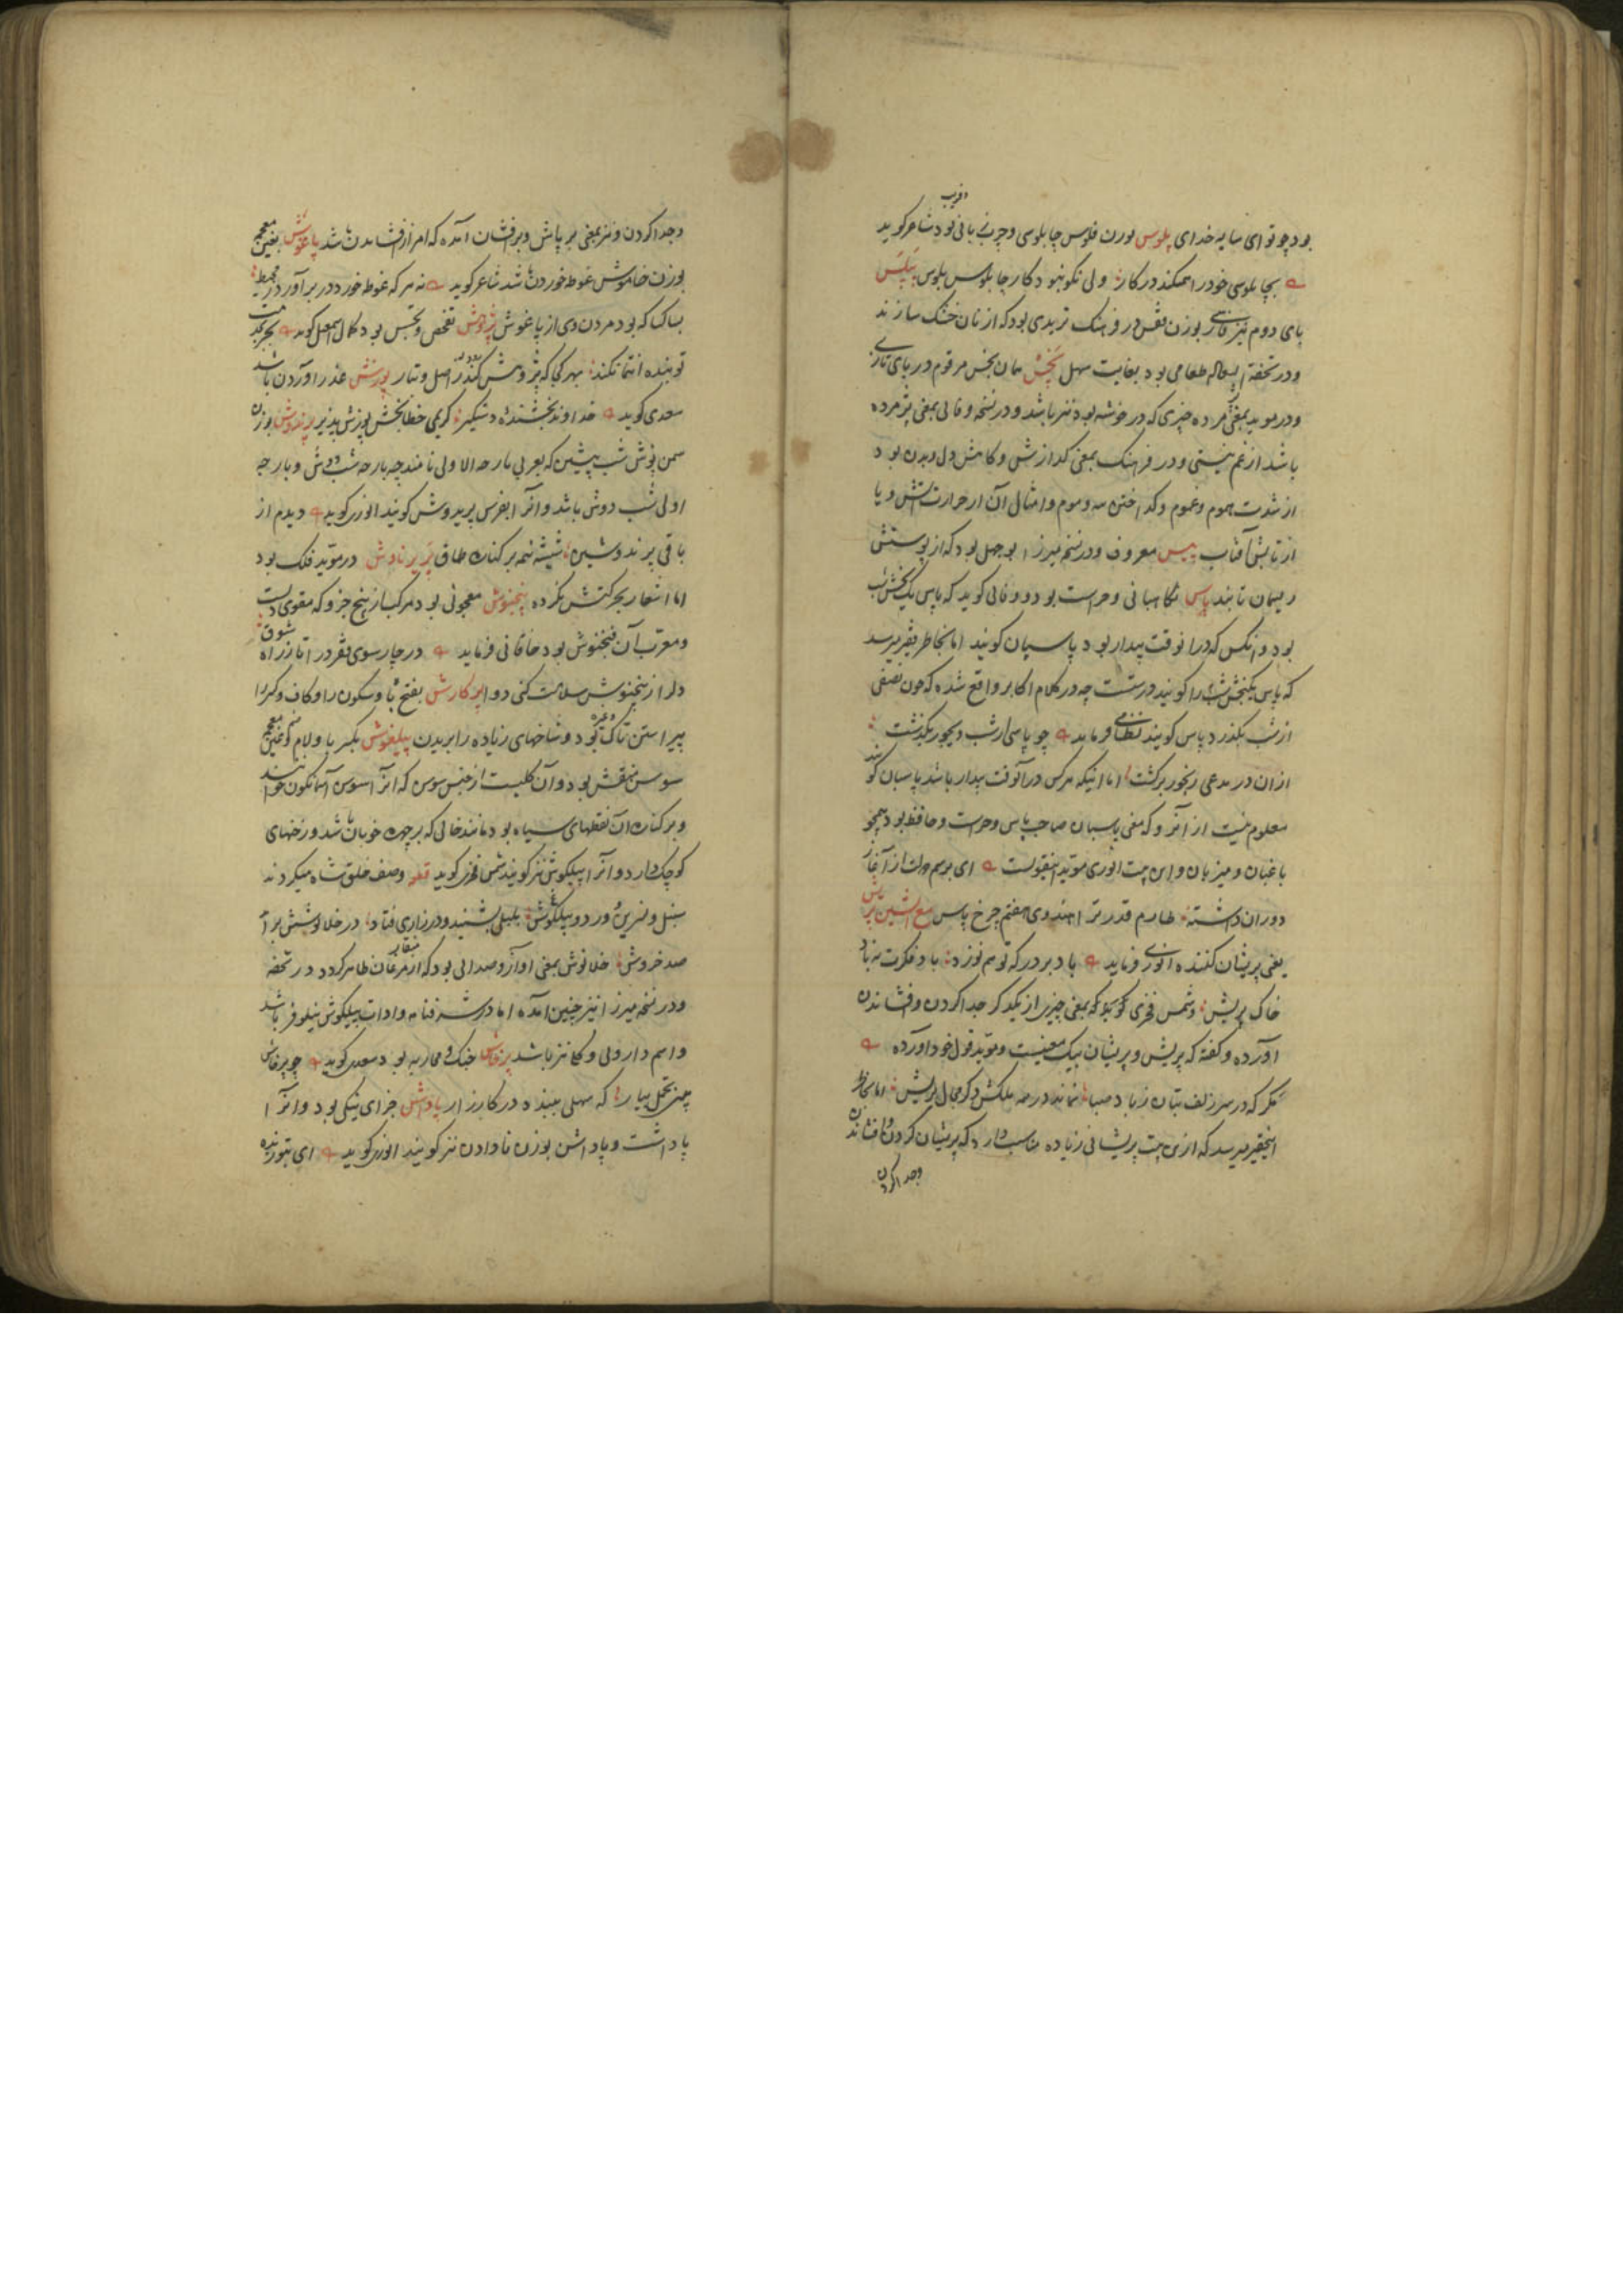 و فریب
بود چو تو ای سایه خدای پلوس بوزن فلوس چاپلوسی و چرب زبانی بود شاعر گوید
بچاپلوسی خود را همیکند در کار ولی نکو نبود کار چاپلوس پلوس
پای دوم نیز فارسی بوزن نفس در فرهنک تریدی بود که از نان خشک سازند
و در تحفه طعامی بود بغایت سهل پخش همان بخس مرقوم در بای تازی
و در موید بمعنی مرده چیزی که در خوشه بود نیز باشد و در نسخه وفائی بمعنی پژمرده
باشد از غم نیستی و در فرهنک بمعنی کدازش و کاهش دل و بدن بود
از شدت هموم و غموم و کداختن مه و موم و امثال آن از حرارت آتش و یا
از تابش آفتاب پیس معروف و در نسخه میرزا بوجهل بود که از پوستش
ریسمان تابند پاس نگاهبانی و حراست بود و وفائی کوید که پاس یک بخش شب
بود و آنکس که در آنوقت بیدار بود پاسبان کویند اما بخاطر فقیر میرسد
که پاس یکبخش شب را کویند درستست چه در کلام اکابر واقع شده که چون نصفی
از شب بکذرد پاس کویند نظامی فرماید چو پاسی از شب دیجور بکذشت
از ان در مدعی رنجور برکشت اما اینکه هرکس در آنوقت بیدار باشد پاسبان کویند
معلوم نیست از آنرو که معنی پاسبان صاحب پاس و حراست و حافظ بود همچو
باغبان و میزبان و این بیت انوری موید اینقولست ای برسم دولت از آغاز
دوران داشته طارم قدر ترا هندوی هفتم چرخ پاس مع الشین پریش
یعنی پریشان کننده انوری فرماید باد بر درکه تو هم نوزد باد فکرت نه باد
خاک پریش و شمس فخری کوید که بمعنی چیزی از یکدکر جدا کردن و فشاندن
آورده و کفته که پریش و پریشان بیک معنیست و موید قول خود آورده
مکر که در سر زلف بتان ز باد صبا نماند در همه ملکش دکر مجال پریش اما بخاطر
اینحقیر میرسد که از ین بیت پریشانی زیاده مناسب دارد که پریشان کردن و افشاندن
و جدا کردن
و جدا کردن و نیز بمعنی بر پاش و برفشان آمده که امر از فشاندن باشد پاغوش بغین معجمه
بوزن خاموش غوطه خوردن باشد شاعر کوید نه هر که غوطه خورد در بر آورد ز محیط
بسا کسا که بود مردن وی از پاغوش پژوهش تفحص و تجسس بود کمال اسمعیل کوید
تو بنده انتما نکند بهر کجا که پژوهش کنند در اصل و تبار پوزش عذر آوردن باشد
سعدی کوید خداوند بخشنده دستکیر کریم خطا بخش پوزش پذیر پرندوش بوزن
سمن پوش شب پیشین که بعربی بارحه الاولی نامند چه بارحه شب دوش و بارحه
اولی شب دوش باشد و آنرا بفرس پریدوش کویند انوری کوید دیدم از
باقی پرندوشین شیشه نیمه بر کناره طاق پرپرنادش در موید فلک بود
اما اشعار بحرکتش نکرده پنجنوش معجونی بود مرکب از پنج جزو که مقوی دلست
و معرب آن فنجنوش بود خاقانی فرماید در چار سوی فقر در آ تا ز راه شوق
دل را ز پنجنوش سلامت کنی دوا پرکارش بفتح با و سکون را و کاف و کسر را
پیراستن تاک و غیره بود و شاخهای زیاده را بریدن پیلغوش بکسر با و لام و ضم غین معجمه
سوسن منقش بود و آن کلیست از جنس سوسن که آنرا سوسن آسمانکون خوانند
و بر کناره آن نقطهای سیاه بود مانند خالی که بر چهره خوبان باشد و رخنهای
کوچک دارد و آنرا پیلکوش نیز کویند شمس فخری کوید وصف خلق شاه میکردند
سنبل و نسرین و ورد و پیلکوش بلبلی بشنید و در زاری فتاد در خلالوشش بر آمد
صد خروش خلالوش بمعنی آواز و صدائی بود که از منقار مرغان ظاهر کردد در تحفه
و در نسخه میرزا نیز چنین آمده اما در شرفنامه و ادات پیلکوش نیلوفر باشد
و اسم دارویی و کلی نیز باشد پرخاش جنک و محاربه بود سعدی کوید چو پرخاش
بینی تحمل بیار که سهلی ببندد در کارزار پاداش جزای نیکی بود و آنرا
پاداشت و پاداشن بوزن نادادن نیز کویند انوری کوید ای بتو زنده